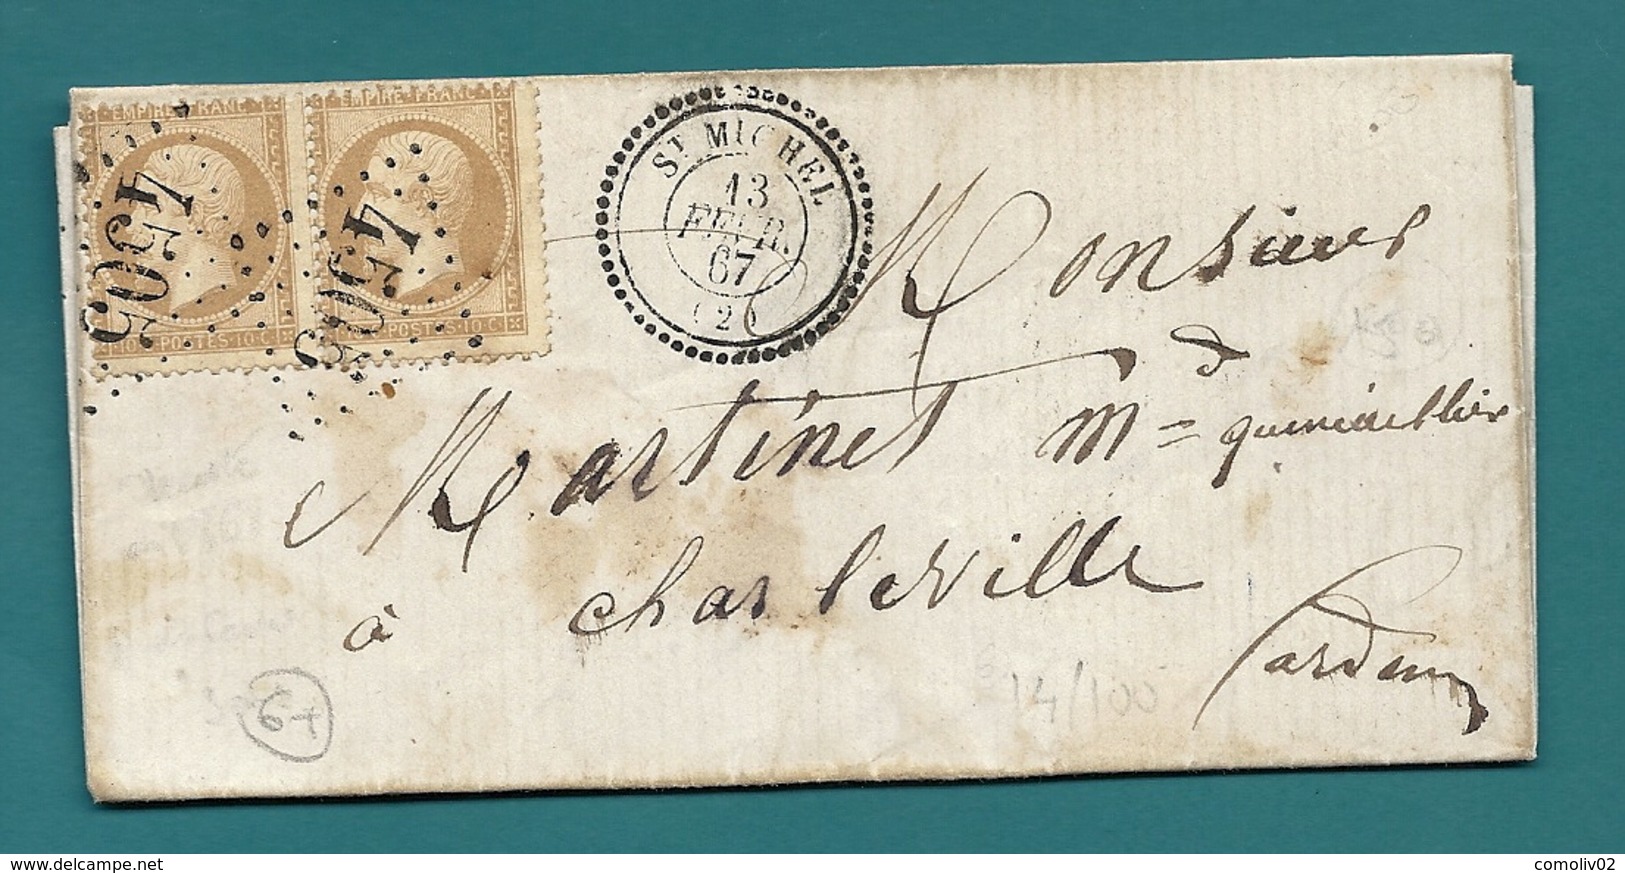 EMPIRE FRANC
EMPIRE FRANC
4505
4505
10 POSTES 10 C
POSTES 10 C
ST MICHEL
13
FEVR.
67
(2)
Monsieur
Martinet Md = quincaillier
à charleville
ardennes
14/100
6+
www.delcampe.net
comoliv02